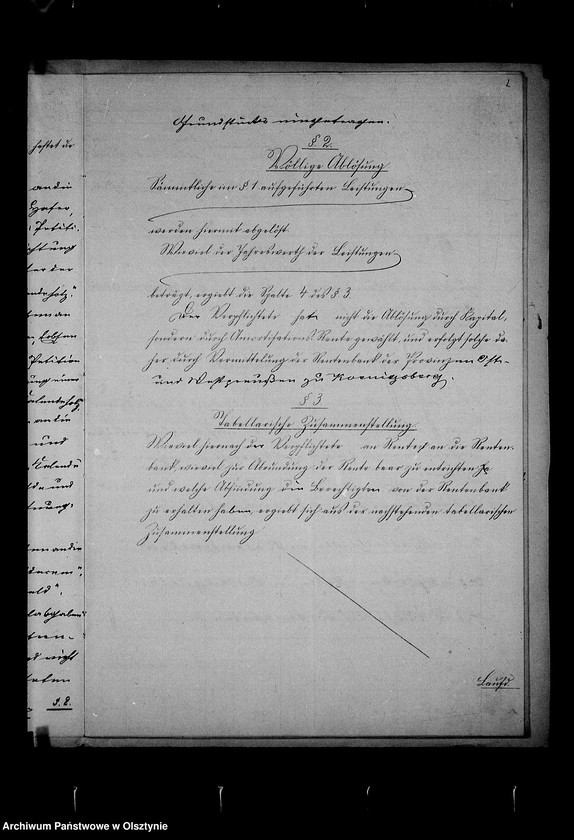 2
Grundstücks eingetragen.
§ 2.
Völlige Ablösung
Sämmtliche im § 1 aufgeführten Leistungen
werden hiermit abgelöst.
Wieviel der Jahreswerth der Leistungen
beträgt, ergiebt die Spalte 4 des § 3.
Der Verpflichtete hat nicht die Ablösung durch Kapital,
sondern durch Amortisations Rente gewählt, und erfolgt solche da-
her durch Vermittelung der Rentenbank der Provinzen Ost-
und Westpreußen zu Koenigsberg.
§ 3
Tabellarische Zusammenstellung.
Wieviel hiernach der Verpflichtete an Renten an die Renten-
bank, wieviel zur Abrundung der Rente baar zu entrichten
und welche Abfindung die Berechtigten von der Rentenbank
zu erhalten haben, ergiebt sich aus der nachstehenden tabellarischen
Zusammenstellung
Laufd.
heftet die
an die
Hafer,
ther der
an die
und
Kalende
und
nicht
Archiwum Państwowe w Olsztynie